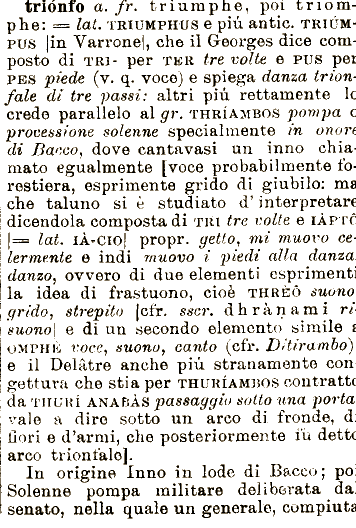 triónfo a. fr. triumphe, poi triom-
phe: = lat. TRIUMPHUS e piú antic. TRIÚM-
PUS |in Varrone|, che il Georges dice com-
posto di TRI- per TER tre volte e PUS per
PES piede (v. q. voce) e spiega danza trion-
fale di tre passi: altri piú rettamente lo
crede parallelo al gr. THRÍAMBOS pompa o
processione solenne specialmente in onore
di Bacco, dove cantavasi un inno chia-
mato egualmente [voce probabilmente fo-
restiera, esprimente grido di giubilo: ma
che taluno si è studiato d' interpretare
dicendola composta di TRI tre volte e IÀPTÔ
|= lat. IÀ-CIO| propr. getto, mi muovo ce-
lermente e indi muovo i piedi alla danza,
danzo, ovvero di due elementi esprimenti
la idea di frastuono, cioè THRÈÔ suono
grido, strepito [cfr. sscr. dhrànami ri-
suono| e di un secondo elemento simile a
OMPHÊ voce, suono, canto (cfr. Ditirambo)
e il Delâtre anche piú stranamente con-
gettura che stia per THURÍAMBOS contratto
da THURÍ ANABÀS passaggio sotto una porta
vale a dire sotto un arco di fronde, di
fiori e d'armi, che posteriormente fu detto
arco trionfale].
In origine Inno in lode di Bacco; poi
Solenne pompa militare deliberata dal
senato, nella quale un generale, compiuta